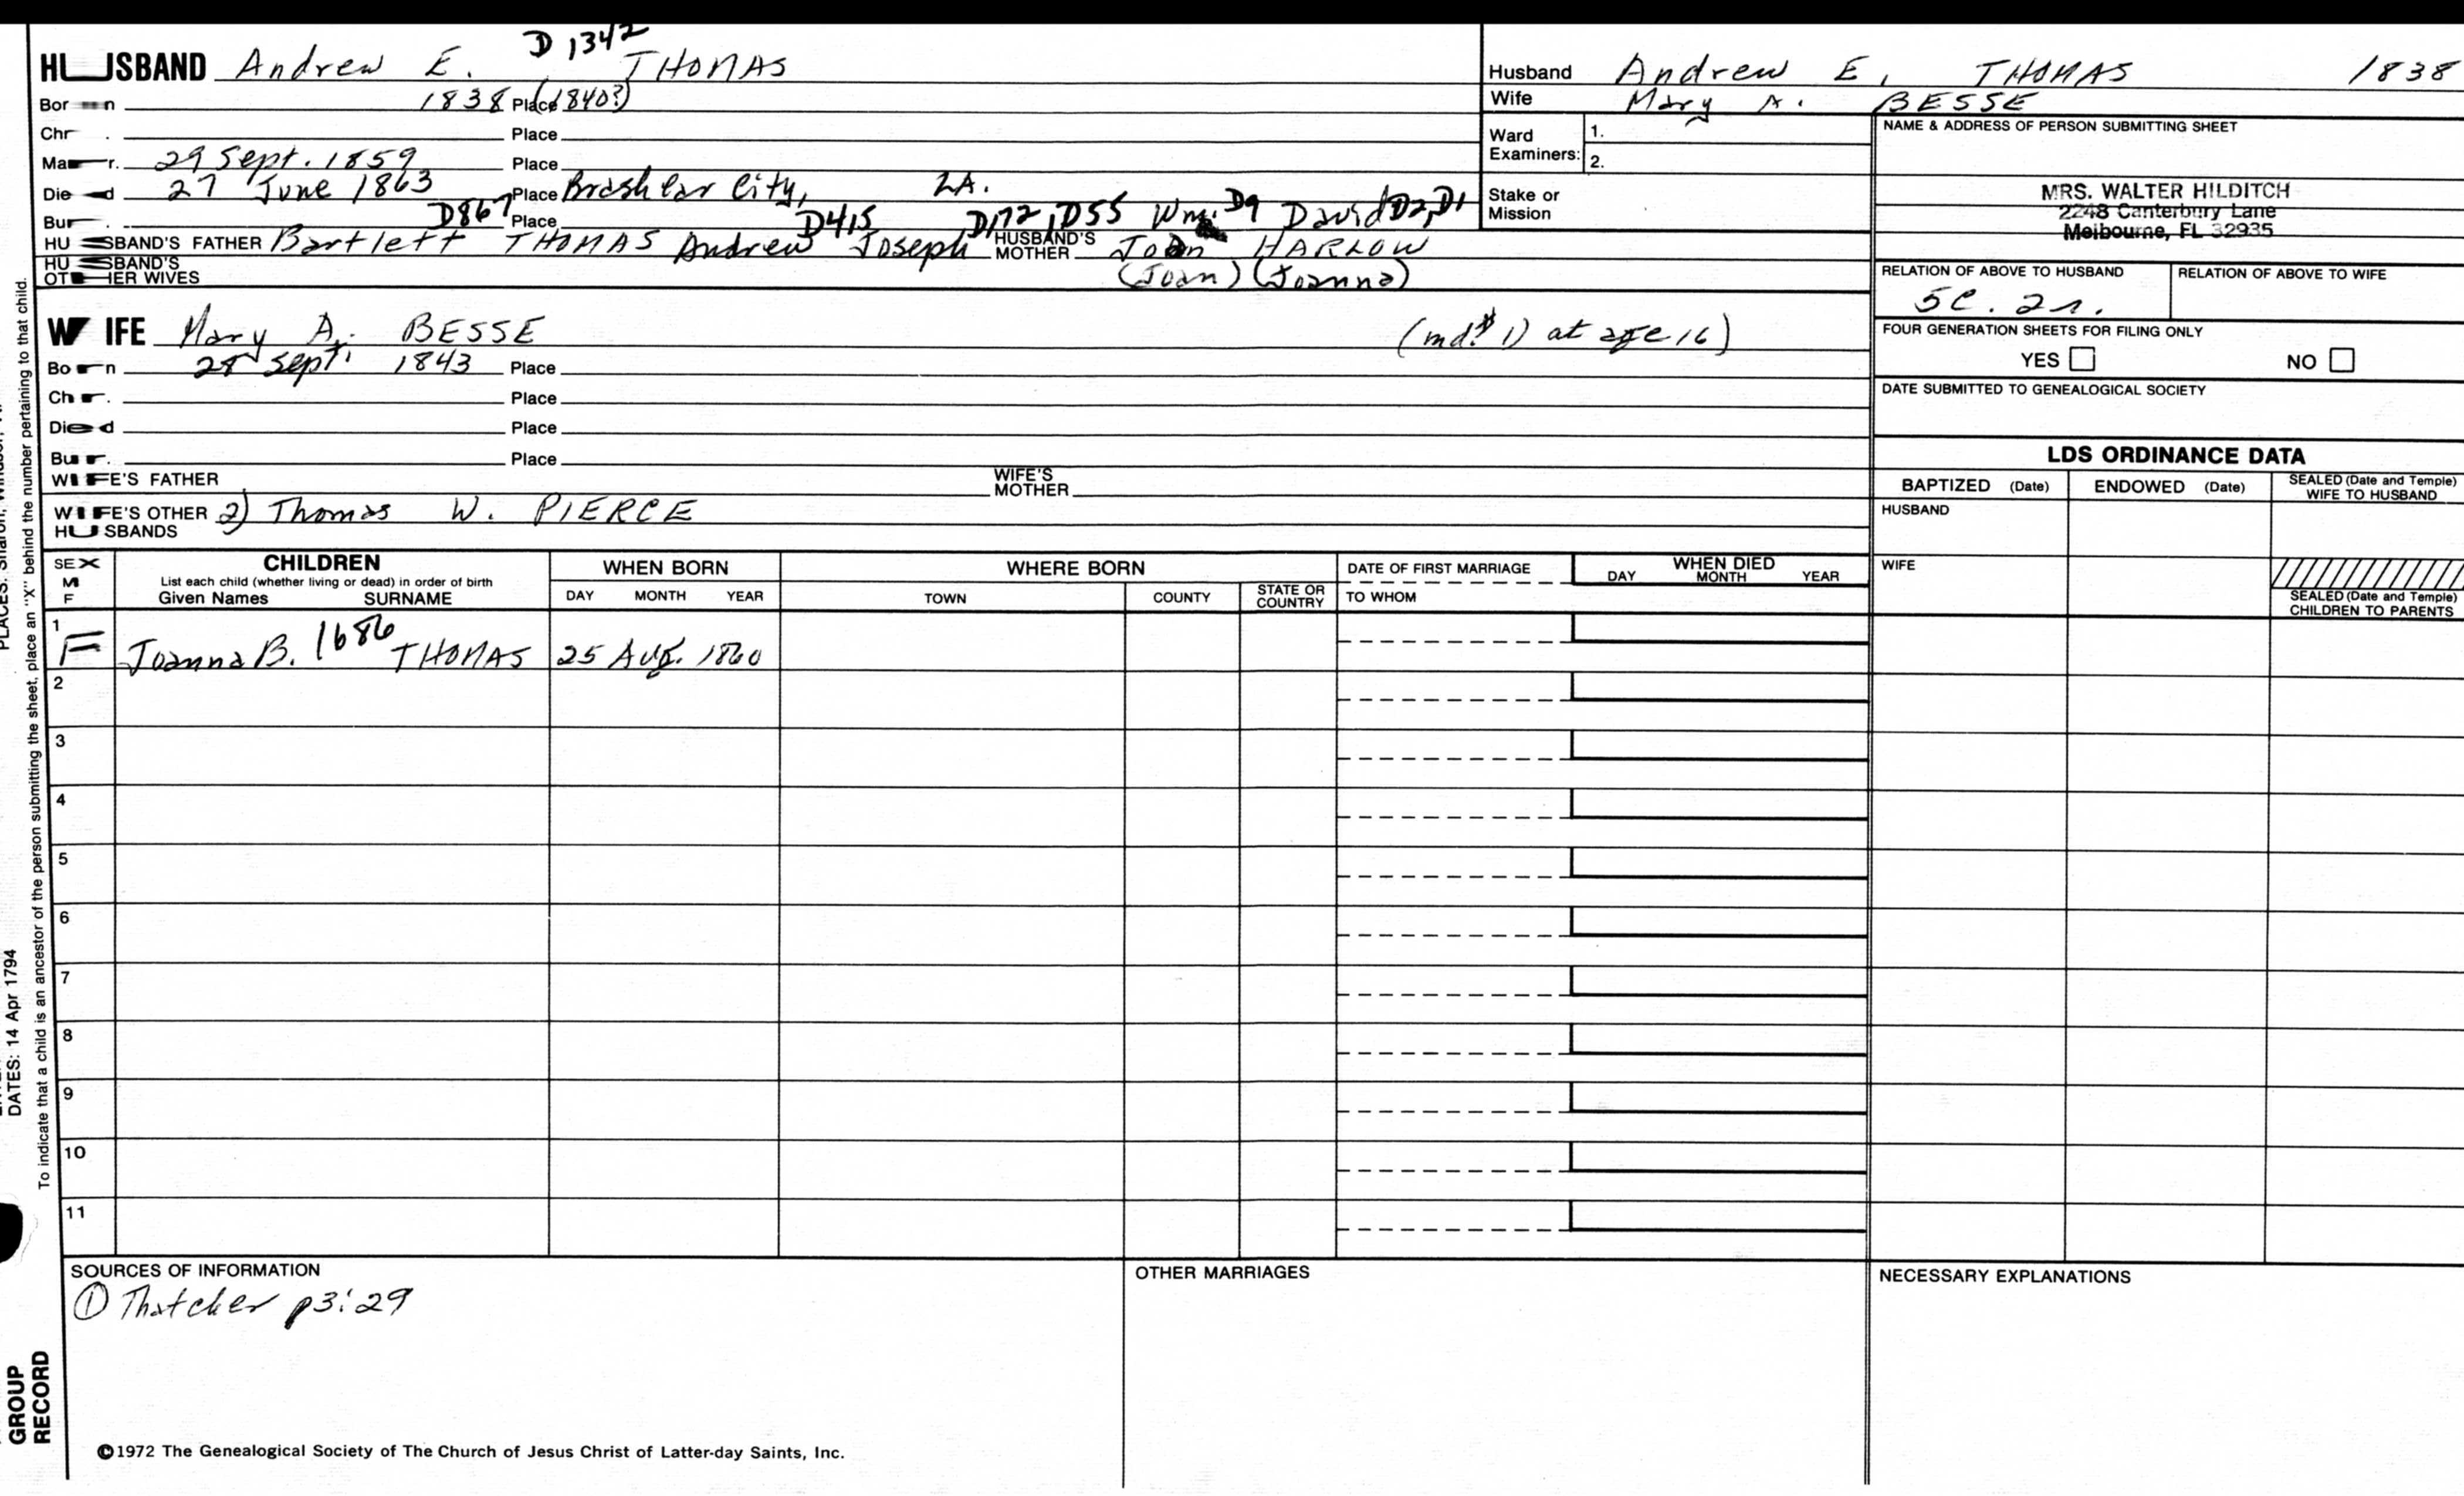 D 1342
HUSBAND Andrew E. THOMAS
Born 1838 Place (1840?)
Chr. Place
Marr. 29 Sept. 1859 Place
Died 27 June 1863 Place Brashear City, LA.
Bur. Place
D867 D415 D172, D55 Wm. D9 David D2, D1
HUSBAND'S FATHER Bartlett THOMAS Andrew Joseph HUSBAND'S MOTHER Joan HARLOW
(Joan) (Joanna)
HUSBAND'S OTHER WIVES
WIFE Mary A. BESSE (md. 1) at age 16)
Born 28 Sept. 1843 Place
Chr. Place
Died Place
Bur. Place
WIFE'S FATHER WIFE'S MOTHER
WIFE'S OTHER HUSBANDS 2) Thomas W. PIERCE
Husband Andrew E. THOMAS 1838
Wife Mary A. BESSE
Ward Examiners: 1.
2.
Stake or Mission
NAME & ADDRESS OF PERSON SUBMITTING SHEET
MRS. WALTER HILDITCH
2248 Canterbury Lane
Melbourne, FL 32935
RELATION OF ABOVE TO HUSBAND RELATION OF ABOVE TO WIFE
5C. 2r.
FOUR GENERATION SHEETS FOR FILING ONLY
YES NO
DATE SUBMITTED TO GENEALOGICAL SOCIETY
LDS ORDINANCE DATA
BAPTIZED (Date) ENDOWED (Date) SEALED (Date and Temple) WIFE TO HUSBAND
HUSBAND
WIFE
SEALED (Date and Temple) CHILDREN TO PARENTS
SEX M F
CHILDREN
List each child (whether living or dead) in order of birth
Given Names SURNAME
WHEN BORN
DAY MONTH YEAR
WHERE BORN
TOWN COUNTY STATE OR COUNTRY
DATE OF FIRST MARRIAGE
TO WHOM
WHEN DIED
DAY MONTH YEAR
1 F Joanna B. 1686 THOMAS 25 Aug. 1860
2
3
4
5
6
7
8
9
10
11
SOURCES OF INFORMATION
① Thatcher p3:29
OTHER MARRIAGES
NECESSARY EXPLANATIONS
©1972 The Genealogical Society of The Church of Jesus Christ of Latter-day Saints, Inc.
To indicate that a child is an ancestor of the person submitting the sheet, place an "X" behind the number pertaining to that child.
PLACES: Sharon, Windsor,
DATES: 14 Apr 1794
GROUP
RECORD